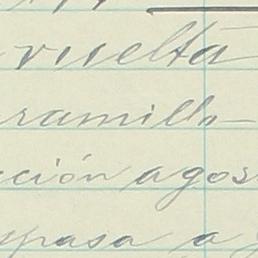 vuelta
ramillo
cción agos
spasa a